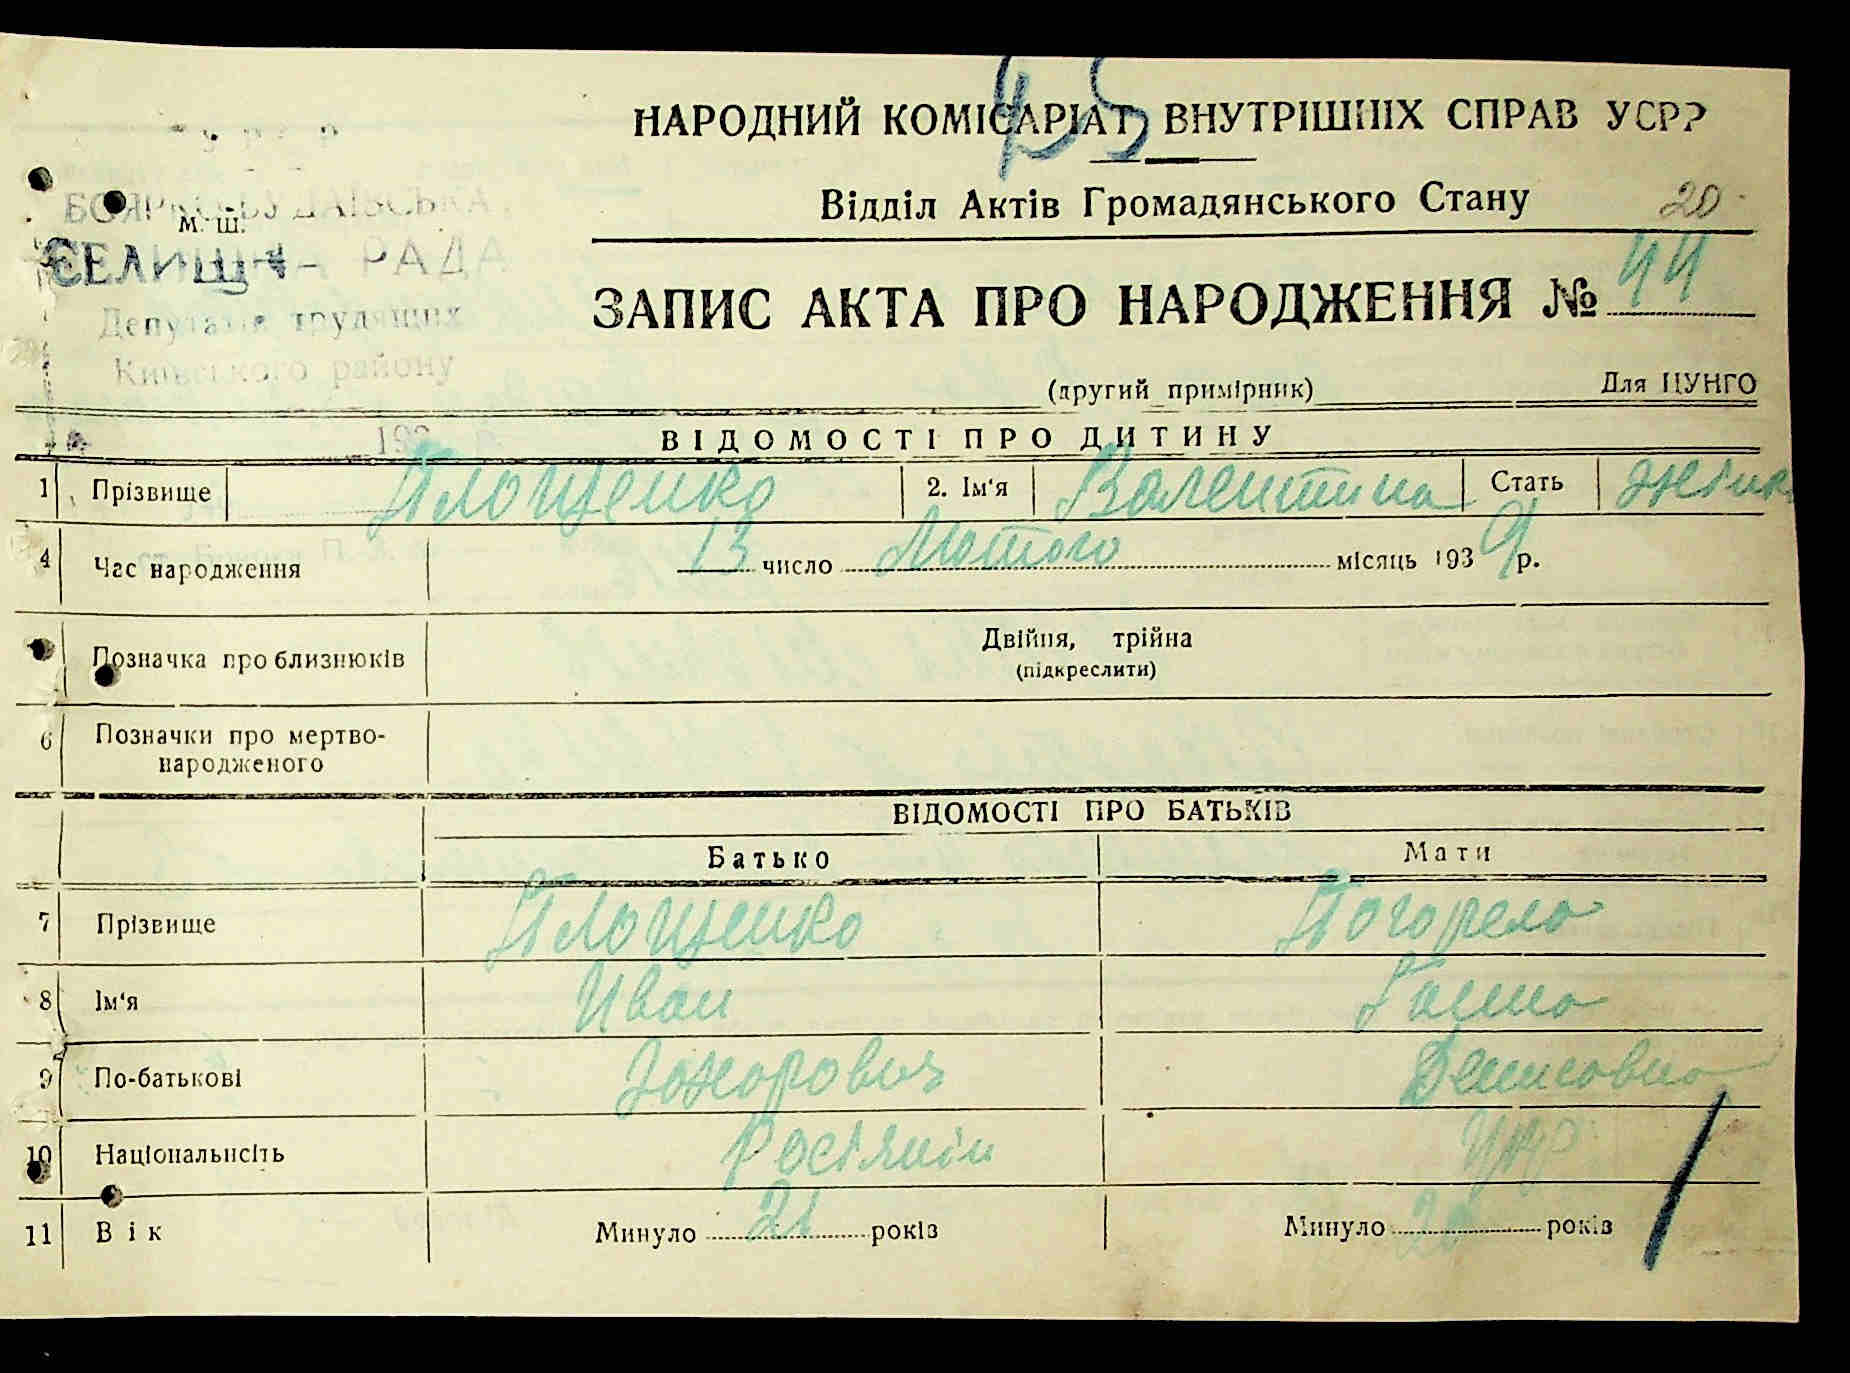 45
НАРОДНИЙ КОМІСАРІАТ ВНУТРІШНІХ СПРАВ УСРР
Відділ Актів Громадянського Стану
20
М. Ш.
СЕЛИЩНА РАДА
Депутатів трудящих
Київського району
ЗАПИС АКТА ПРО НАРОДЖЕННЯ № 44
(другий примірник)
Для ЦУНГО
193
ВІДОМОСТІ ПРО ДИТИНУ
1 Прізвище Площенко 2. Ім'я Валентина Стать жінк
4 Час народження 13 число Лютого місяць 1939 р.
Позначка про близнюків Двійня, трійна
(підкреслити)
6 Позначки про мертво-
народженого
ВІДОМОСТІ ПРО БАТЬКІВ
Батько Мати
7 Прізвище Площенко Погорела
8 Ім'я Иван Ганна
9 По-батькові Денисовна
10 Національність Росіянін Укр
11 Вік Минуло 21 років Минуло 20 років